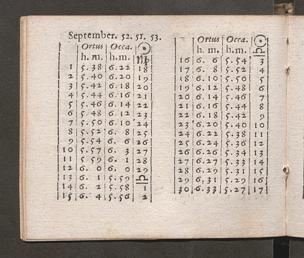 September. 52. 51. 53.
Ortus Occa. ☉
h. m. h. m. ♍
1 5. 38 6. 22 18
2 5. 40 6. 20 19
3 5. 42 6. 18 20
4 5. 44 6. 16 21
5 5. 46 6. 14 22
6 5. 48 6. 12 23
7 5. 50 6. 10 24
8 5. 52 6. 8 25
9 5. 54 6. 6 26
10 5. 57 6. 3 27
11 5. 59 6. 1 28
12 6. 0 6. 0 29
13 6. 1 5. 59 ♎
14 6. 2 5. 58 1
15 6. 4 5. 56 2
Ortus Occa. ☉
h. m. h. m. ♎
16 6. 6 5. 54 3
17 6. 8 5. 52 4
18 6. 10 5. 50 5
19 6. 12 5. 48 6
20 6. 14 5. 46 7
21 6. 16 5. 44 8
22 6. 18 5. 42 9
23 6. 20 5. 40 10
24 6. 22 5. 38 11
25 6. 24 5. 36 12
26 6. 26 5. 34 13
27 6. 27 5. 33 14
28 6. 29 5. 31 15
29 6. 31 5. 29 16
30 6. 33 5. 27 17